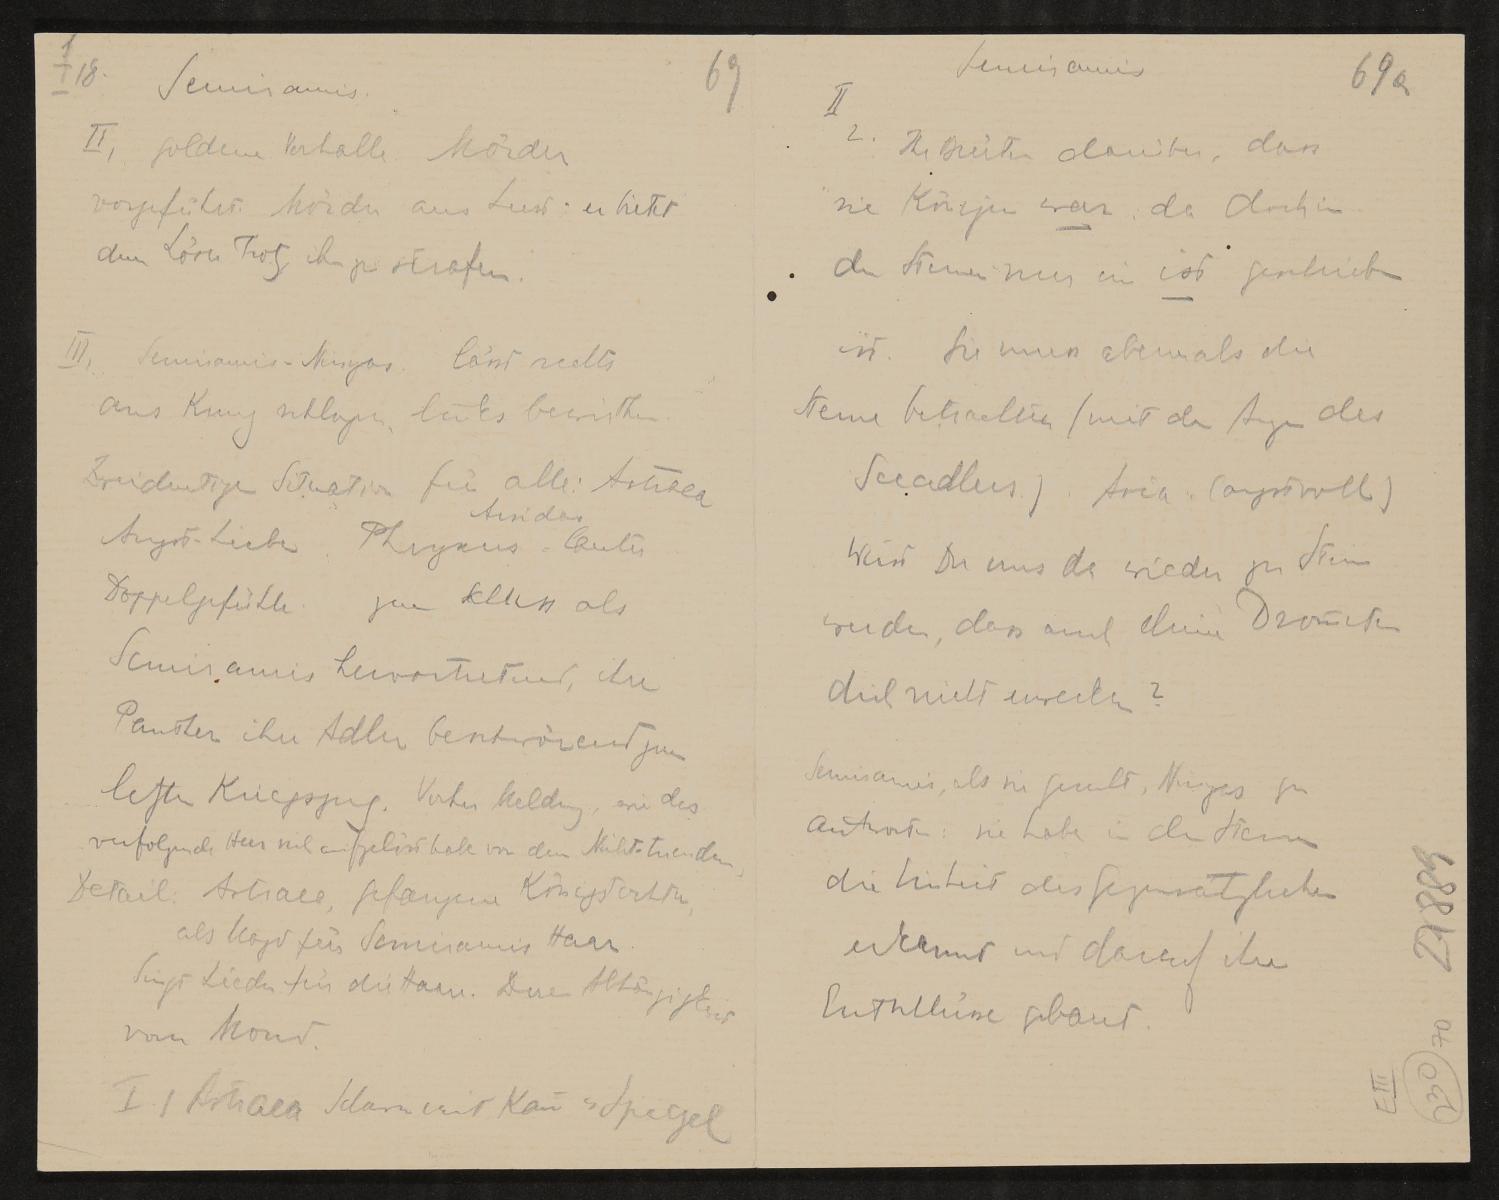 1/I 18.
Semiramis.
69
II, goldene Vorhalle Mörder
vorgeführt: Mörder aus Lust: er bietet
dem Löwen Trotz ihn zu strafen.
III, Semiramis-Ninyas. lässt rechts
ans Kreuz schlagen, links bewirthen
Zweideutige Situation für alle: Astraea
Arsidas
Angst-Liebe. Phryxus - lauter
Doppelgefühle. zum Schluss als
Semiramis hervortretend, ihre
Panther ihre Adler beschwörend zum
letzten Kriegszug. Vorher Meldung, wie das
verfolgende Heer sich aufgelöst habe vor den
Detail: Astraea, gefangene Königstochter,
als Magd für Semiramis Haar.
Singt Lieder für die Haare. Deren Abhängigkeit
vom Mond.
I. 1 Astraea Sclavin mit Kamm u Spiegel
Semiramis
69a
II
2. Ihr Brüten darüber, dass
sie Königin war, da doch in
den Sternen nur ein ist geschrieben
ist. Sie muss abermals die
Sterne betrachten (mit den Augen des
Seeadlers). Aria. (angstvoll)
Wirst Du uns da wieder zu Stein
werden, dass auch deine Drometen
dich nicht erwecken?
Semiramis, als sie geruht, Ninyas zu
antworten: sie habe in den Sternen
die Einheit des Gegensätzlichen
erkannt und darauf ihre
Entschlüsse gebaut.
E III
230
70